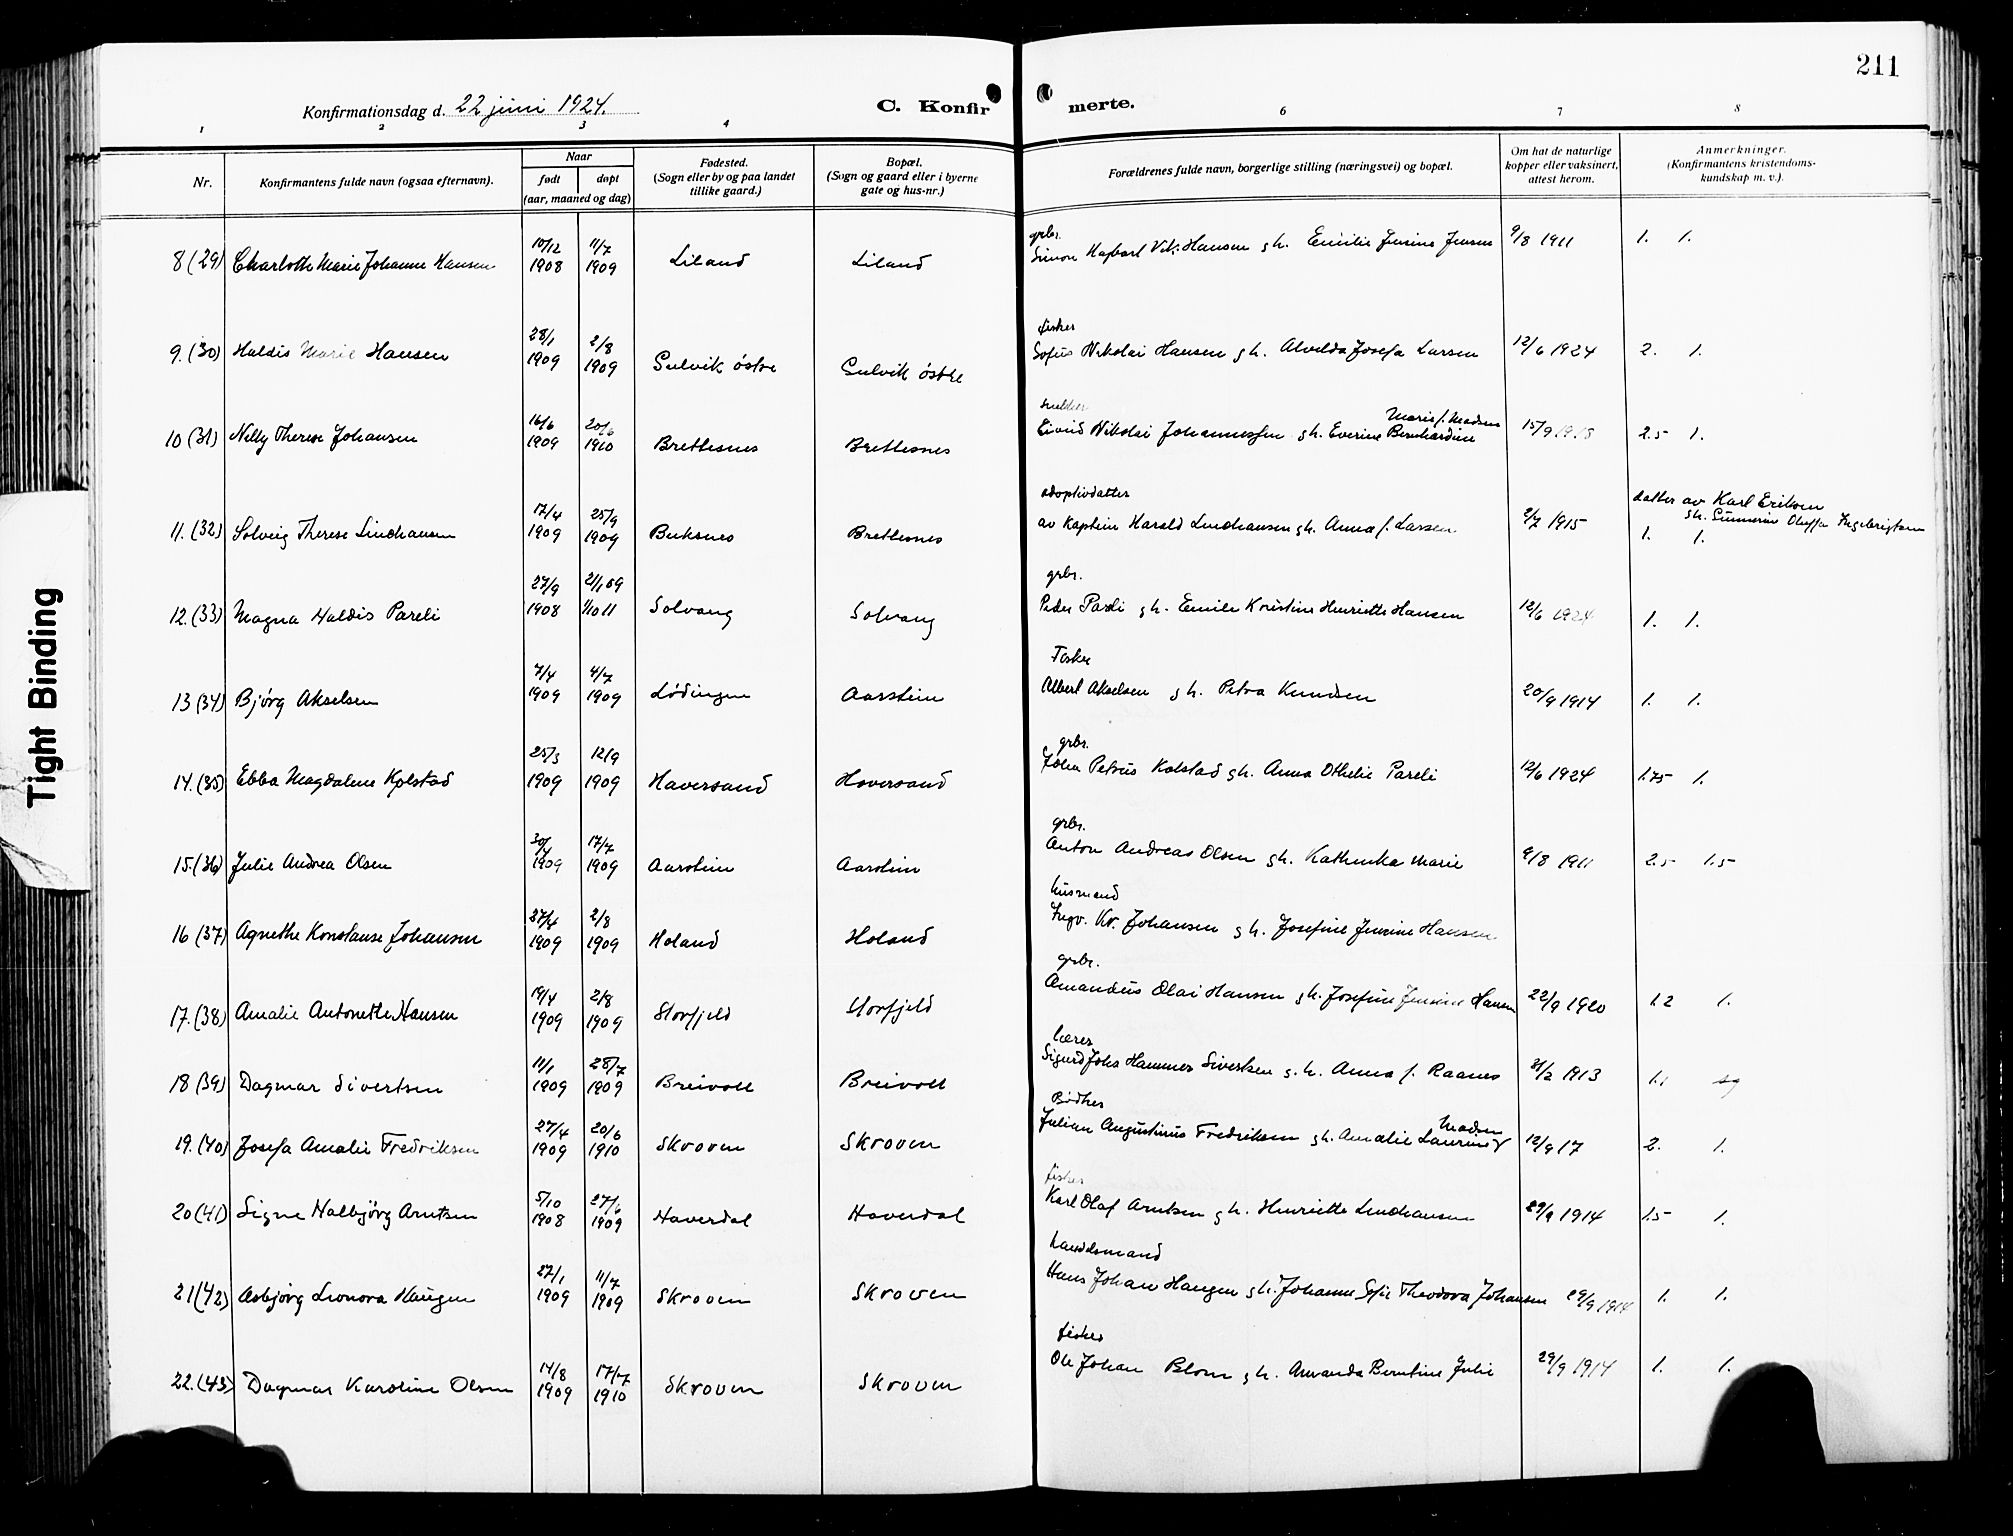 211
Konfirmationsdag d. 22 juni 1924.
C. Konfirmerte.
1 2 3 4 6 7 8
Nr.
Konfirmantens fulde navn (ogsaa efternavn).
Naar
født døpt
(aar, maaned og dag)
Fødested.
(Sogn eller by og paa landet
tillike gaard.)
Bopæl.
(Sogn og gaard eller i byerne
gate og hus-nr.)
Forældrenes fulde navn, borgerlige stilling (næringsvei) og bopæl.
Om hat de naturlige
kopper eller vaksinert,
attest herom.
Anmerkninger.
(Konfirmantens kristendoms-
kundskap m. v.).
grbr.
8 (29) Charlotte Marie Johanne Hansen 10/12 1908 11/7 1909 Liland Liland Simon Hagbart Vik. Hansen g h. Emilie Jensine Jensen 9/8 1911 1. 1.
fisker
9. (30) Haldis Marie Hansen 28/1 1909 2/8 1909 Gulvik østre Gulvik østre Sofus Nikolai Hansen g h. Alvelda Josefa Larsen 12/6 1924 2. 1.
10 (31) Nelly Therese Johansen 16/6 1909 20/6 1910 Brettesnes Brettesnes Eivind Nikolai Johannessen g h. Everine Bernhardine Marie f. Madsen 15/9 1915 2.5 1.
adoptivdatter
11. (32) Solveig Therese Lindhansen 17/4 1909 25/9 1909 Buksnes Brettesnes av Kaptein Harald Lindhansen g h. Anna f. Larsen 2/7 1915 datter av Karl Eriksen
gh. Gunnerine Oluffa Ingebrigtsen
1. 1.
grbr.
12. (33) Magna Haldis Pareli 27/9 1908 21/1 09 1/10 11 Solvang Solvang Peder Pareli g h. Emile Kristine Henriette Hansen 12/6 1924 1. 1.
Fisker
13 (34) Bjørg Akselsen 7/4 1909 4/7 1909 Lødingen Aarstein Albert Akselsen g h. Petra Knudsen 20/9 1914 1. 1.
grbr.
14. (35) Ebba Magdalene Kolstad 25/3 1909 12/9 1909 Haversand Haversand Johan Petrus Kolstad g h. Anna Othelie Pareli 12/6 1924 1.75 1.
grbr.
15. (36) Julie Andrea Olsen 1909 17/7 1909 Aarstein Aarstein Anton Andreas Olsen g h. Kathinka Marie 9/8 1911 2.5 1.5
husmand
16 (37) Agnethe Konstanse Johansen 27/4 1909 2/8 1909 Holand Holand Ingv. Kr. Johansen g h. Josefine Jensine Hansen
grbr.
17. (38) Amalie Antonette Hansen 19/4 1909 2/8 1909 Storfjeld Storfjeld Amandus Olai Hansen g h. Josefine Jensine Hansen 22/9 1920 1.2 1.
lærer
18 (39) Dagmar Sivertsen 11/1 1909 28/7 1909 Breivoll Breivoll Sigurd Johs Hammer Sivertsen g. h. Anna f. Raanes 21/2 1913 1.1 sg
Bødker
19. (40) Josefa Amalie Fredriksen 27/4 1909 20/6 1910 Skroven Skroven Julian Augustinus Fredriksen g h. Amalie Laurine Madsen 12/9 17 2. 1.
fisker
20 (41) Signe Halbjørg Arntsen 5/10 1908 27/6 1909 Haverdal Haverdal Karl Olaf Arntsen g h. Henriette Lindhansen 29/9 1914 1.5 1.
handelsmand
21 (42) Asbjørg Leonora Haugen 27/1 1909 11/7 1909 Skroven Skroven Hans Johan Haugen g h. Johanne Sofie Theodora Johansen 29/9 1914 1. 1.
fisker
22. (43) Dagmar Karoline Olsen 14/8 1909 17/7 1910 Skroven Skroven Ole Johan Blom g h. Amanda Berntine Julie 29/9 1914 1. 1.
Tight Binding